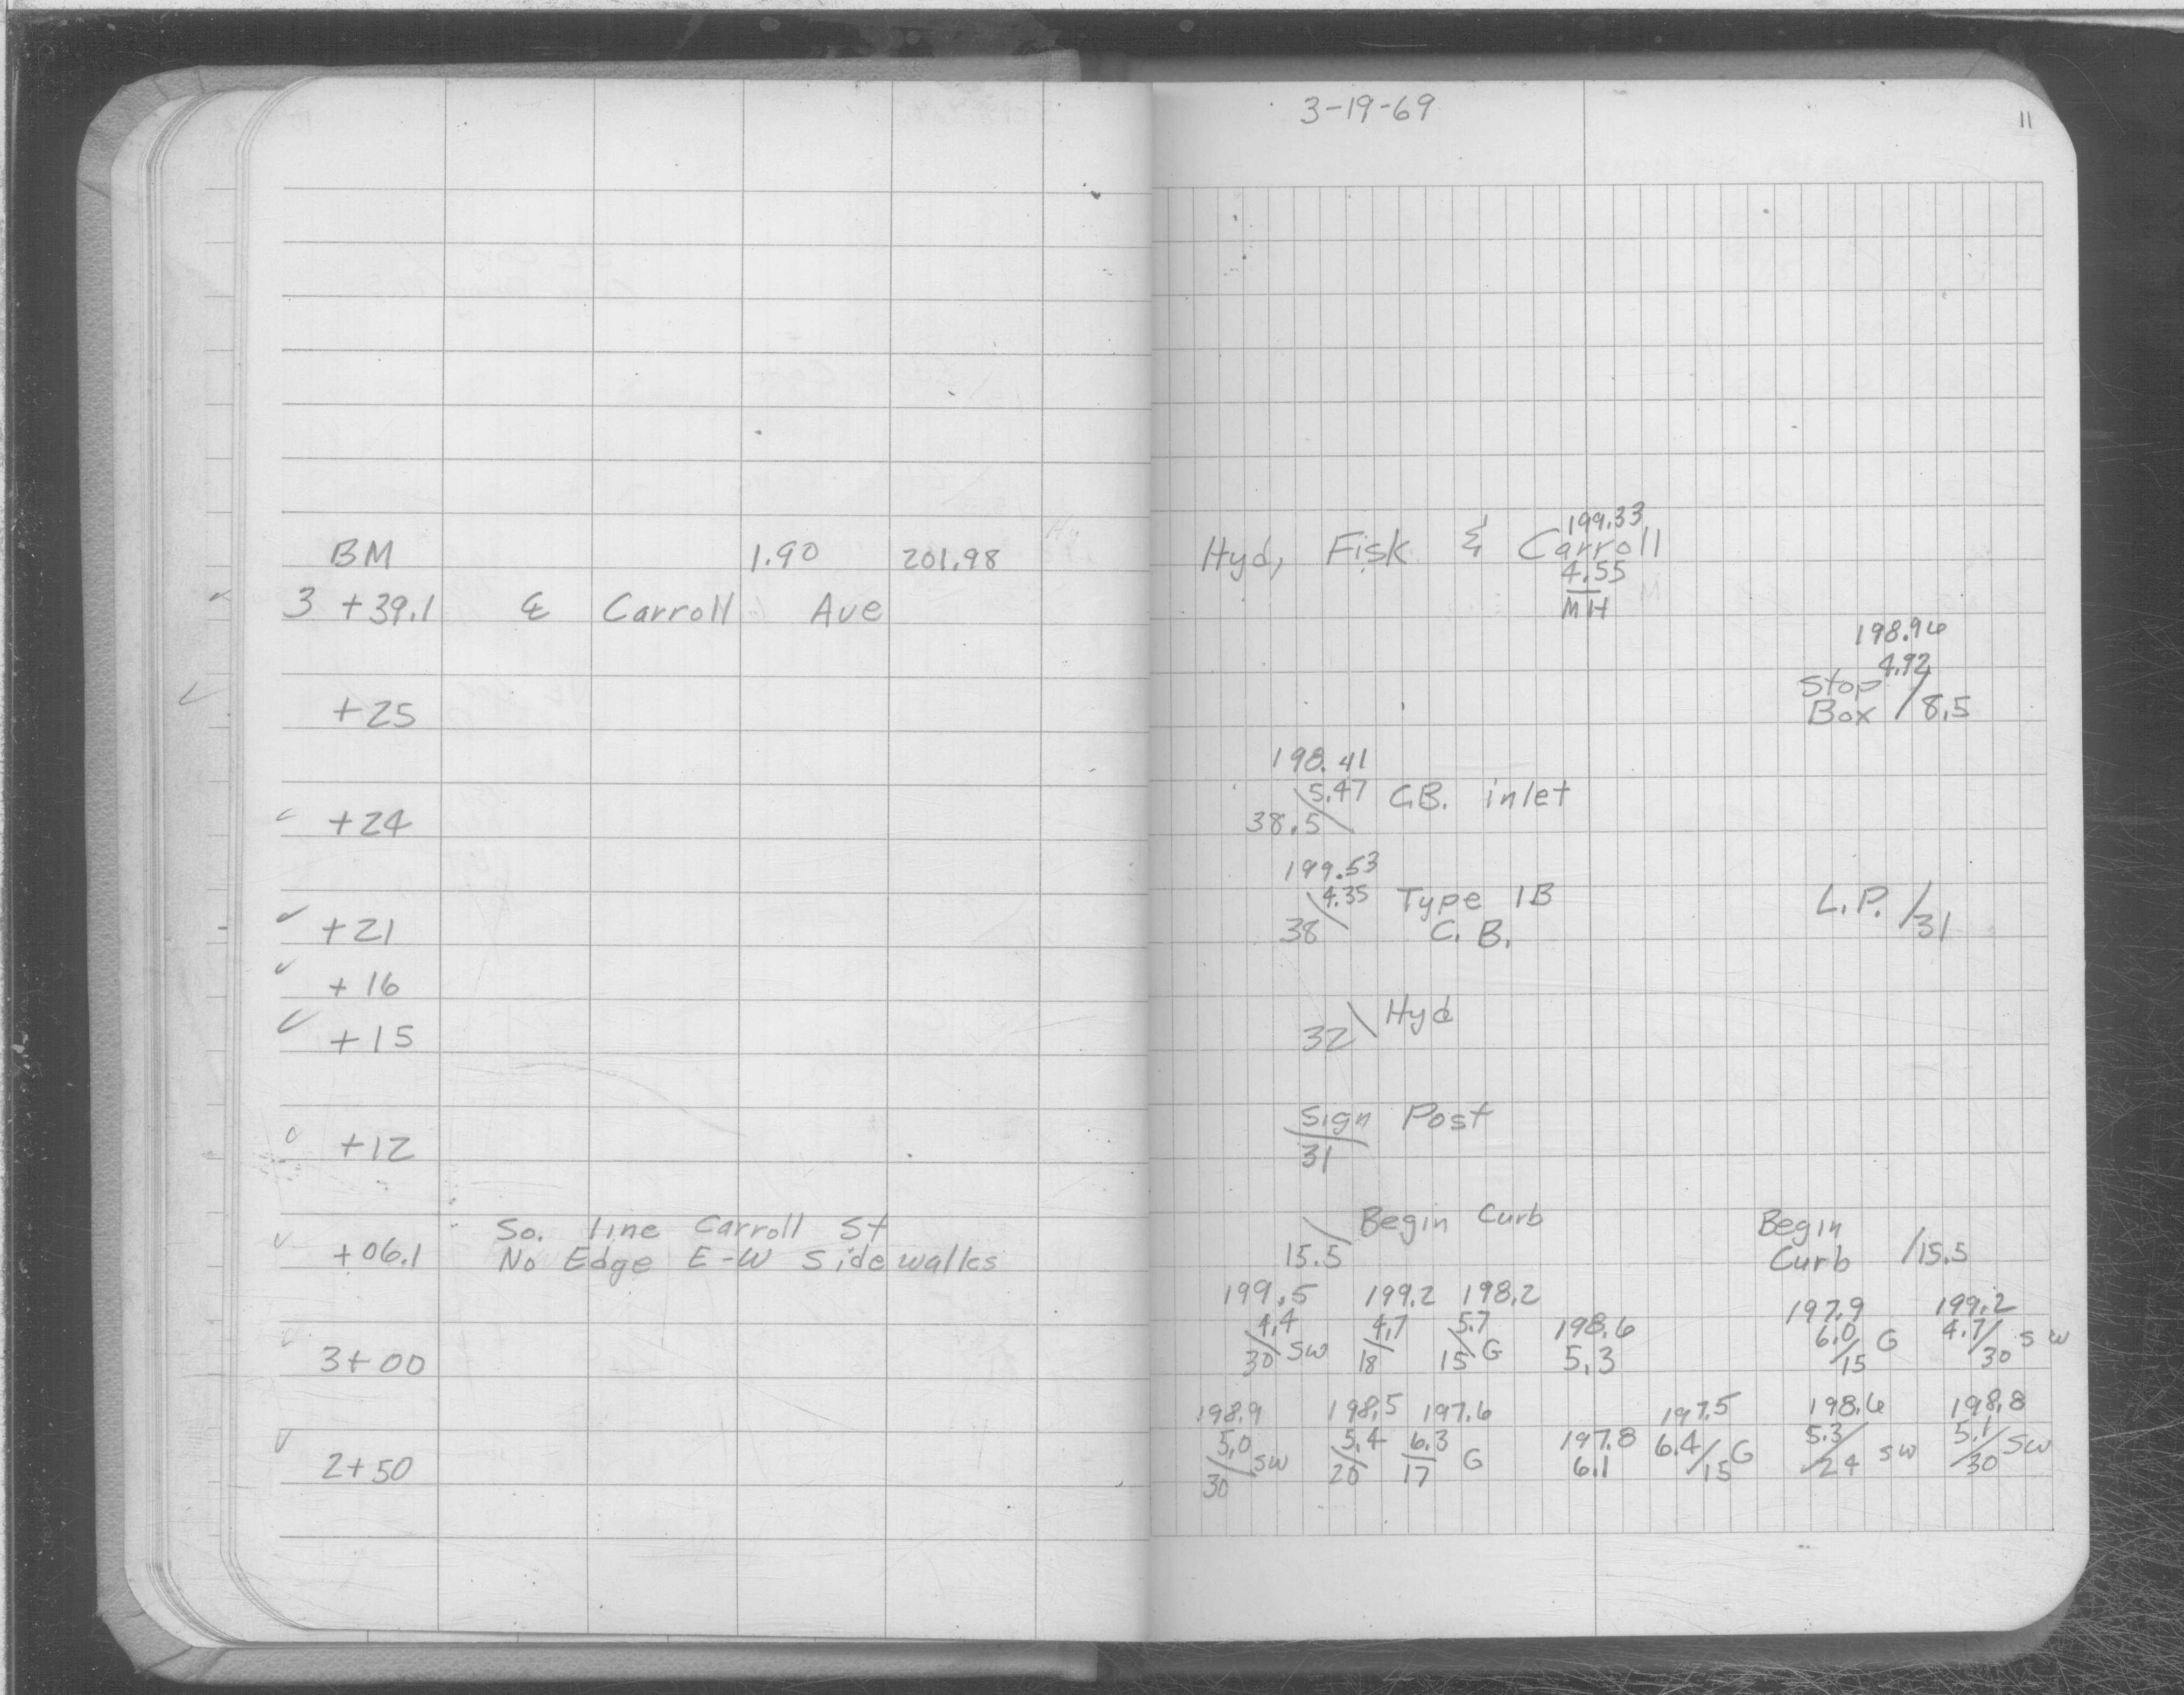 3-19-69
11
199.33
BM 1.90 201.98 Hyd, Fisk & Carroll
4.55
3 +39.1 ℄ Carroll Ave MH
198.96
4.92
Stop
+25 Box / 8.5
198.41
5.47 C.B. inlet
+24 38.5
199.53
4.35 Type 1B L.P. / 31
+21 38 C. B.
+16
Hyd
+15 32
Sign Post
+12 31
So. line Carroll St Begin Curb Begin
+06.1 No Edge E-W Sidewalks 15.5 Curb / 15.5
199.5 199.2 198.2 198.6 197.9 199.2
4.4 4.7 5.7 6.0 4.7
3+00 30 SW 18 15 G 5.3 15 G 30 SW
198.9 198.5 197.6 197.5 198.6 198.8
5.0 5.4 6.3 197.8 6.4 5.3 5.1
2+50 30 SW 20 17 G 6.1 15 G 24 SW 30 SW